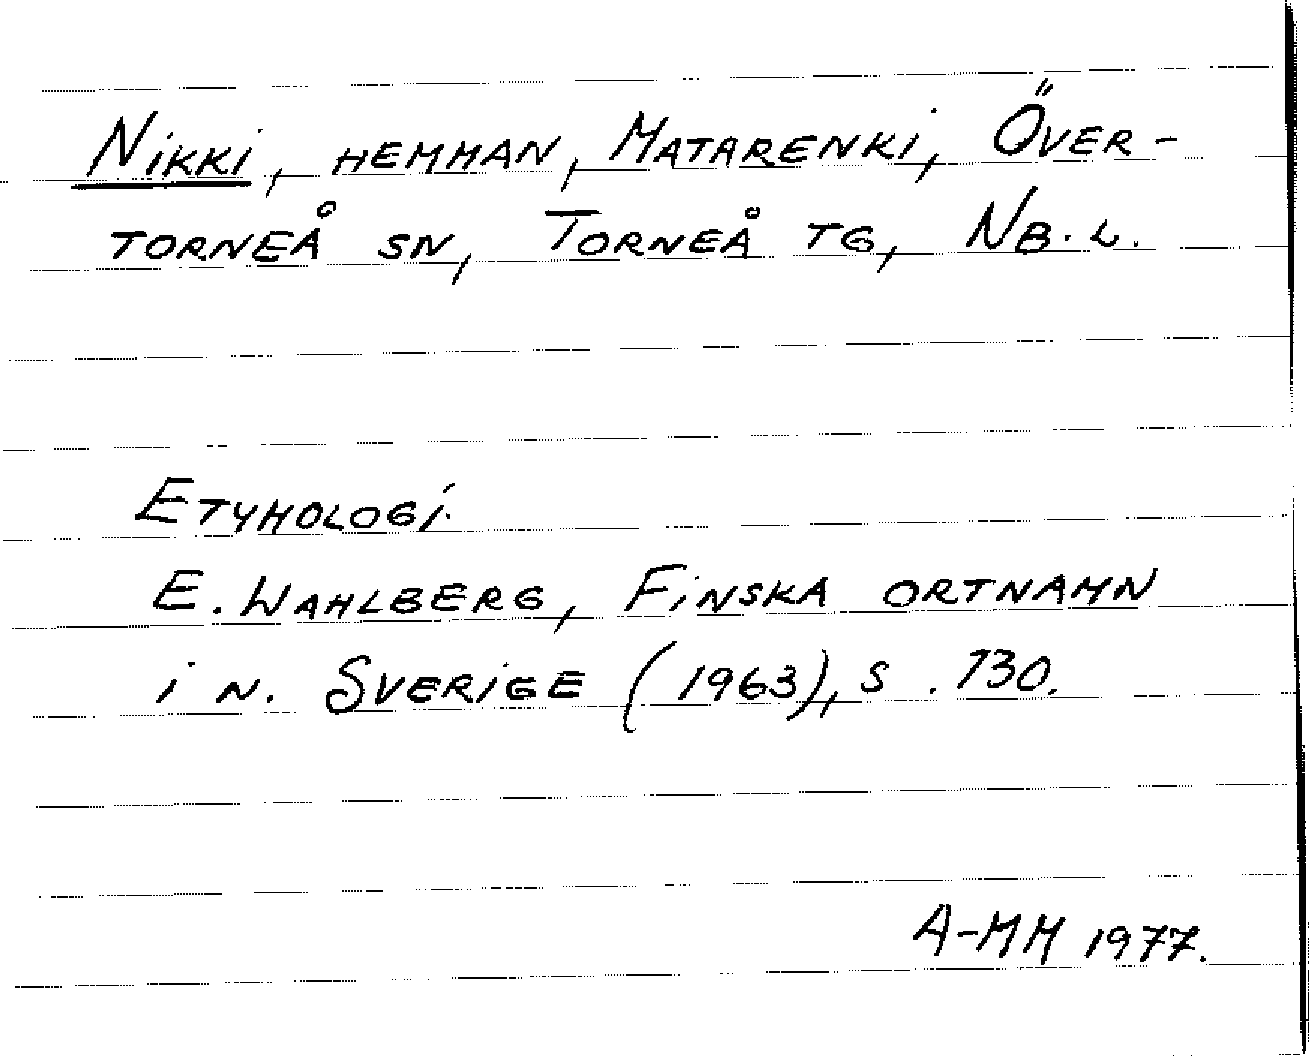 Nikki, hemman, Matarenki, Över-
torneå sn, Torneå tg, Nb.l.
Etymologi.
E. Wahlberg, Finska ortnamn
i n. Sverige (1963), s. 130.
A-MM 1977.